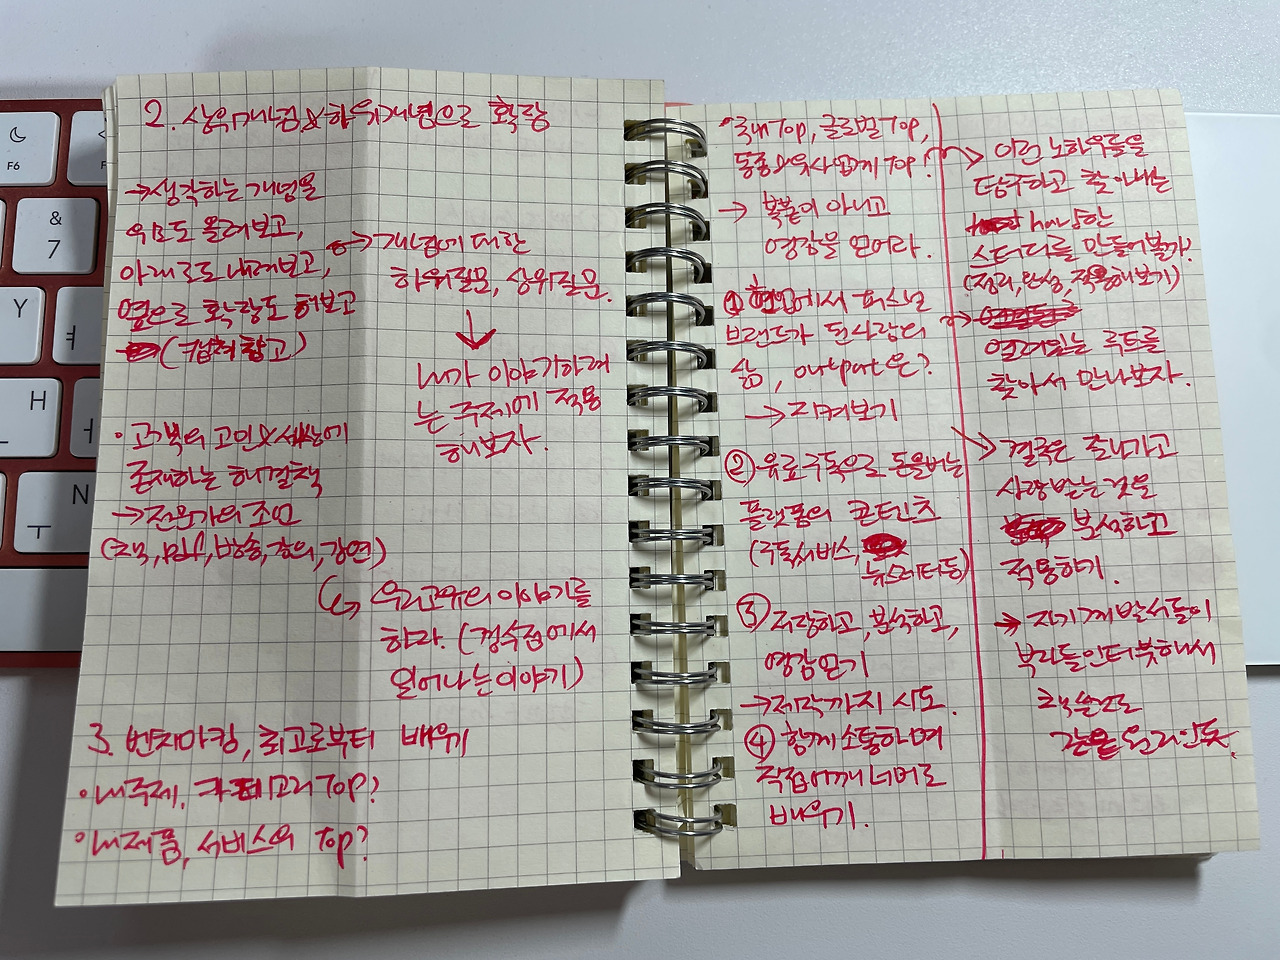 2. 상위개념&하위개념으로 확장
→생각하는 개념을
위로도 올려보고,
아래로도 내려보고,
옆으로 확장도 해보고
(캡쳐참고)
→개념에 대한
하위질문, 상위질문.
↓
내가 이야기하려
는 주제에 적용
해보자.
·고객의 고민&세상에
존재하는 해결책
→전문가의 조언
(책, pdf, 방송, 강의, 강연)
↳ 우리고유의 이야기를
하라. (접수점에서
일어나는 이야기)
3. 벤치마킹, 최고로부터 배우기
·내주제, 카테고리 Top?
·내제품, 서비스의 Top?
·국내Top, 글로벌Top,
동종&유사업계 Top?
→ 복붙이 아니고
영감을 얻어라.
① 현업에서 퍼스널
브랜드가 된 사람의
삶, output은?
→ 지켜보기
② 유료구독으로 돈을버는
플랫폼의 콘텐츠
(구독서비스,
뉴스레터 등)
③ 저장하고, 분석하고,
영감얻기
→제작까지 시도.
④ 함께 소통하며
직접어깨너머로
배우기.
→ 이런 노하우들을
탐구하고 찾아내는
스터디를 만들어볼까?
(정리, 완성, 적용해보기)
→
열려있는 루트를
찾아서 만나보자.
→ 결국은 잘나가고
사랑받는것을
분석하고
적용하기.
→ 자기계발서들이
부자들인터뷰해서
책쓴것도
같은 원리인듯.
F6
&
7
Y
ㅕ
H
ㅗ
N
ㅜ